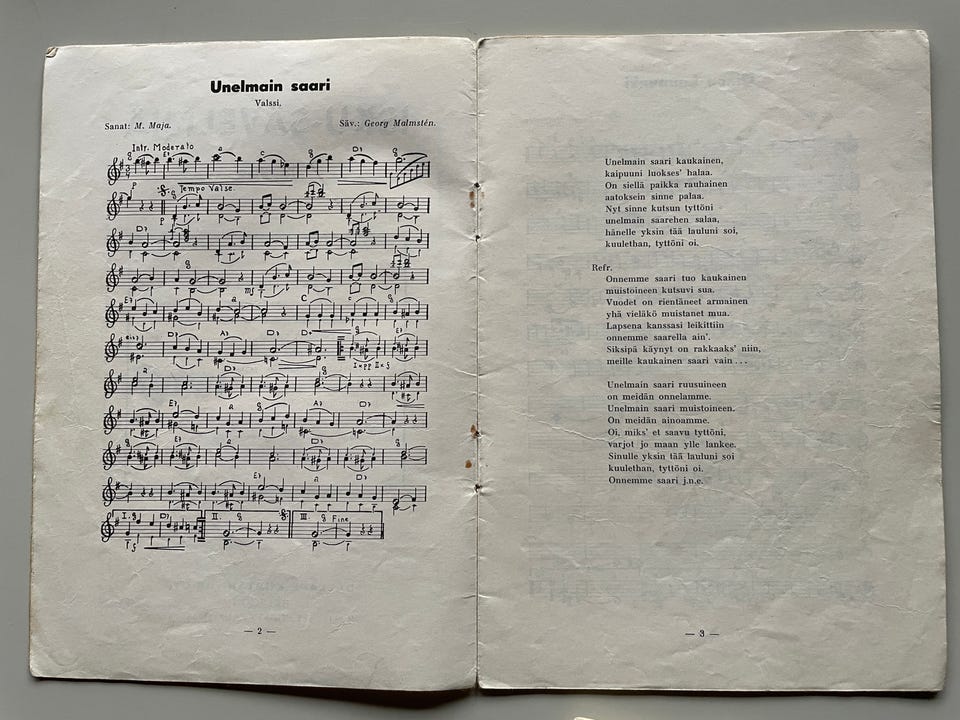 Unelmain saari
Valssi.
Sanat: M. Maja.
Säv.: Georg Malmstén.
Intr. Moderato
Tempo Valse.
Fine
— 2 —
Unelmain saari kaukainen,
kaipuuni luokses' halaa.
On siellä paikka rauhainen
aatoksein sinne palaa.
Nyt sinne kutsun tyttöni
unelmain saarehen salaa,
hänelle yksin tää lauluni soi,
kuulethan, tyttöni oi.
Refr.
Onnemme saari tuo kaukainen
muistoineen kutsuvi sua.
Vuodet on rientäneet armainen
yhä vieläkö muistanet mua.
Lapsena kanssasi leikittiin
onnemme saarella ain'.
Siksipä käynyt on rakkaaks' niin,
meille kaukainen saari vain ...
Unelmain saari ruusuineen
on meidän onnelamme.
Unelmain saari muistoineen.
On meidän ainoamme.
Oi, miks' et saavu tyttöni,
varjot jo maan ylle lankee.
Sinulle yksin tää lauluni soi
kuulethan, tyttöni oi.
Onnemme saari j.n.e.
— 3 —